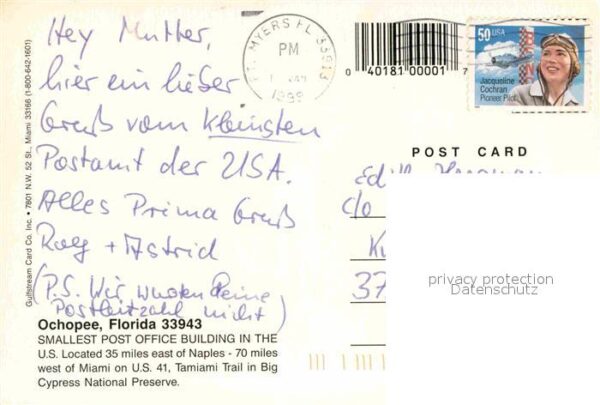 Hey Mutter,
hier ein lieber
Gruß vom kleinsten
Postamt der USA.
Alles Prima Gruß
Rolf + Astrid
(P.S. Wir wussten deine
Postleitzahl nicht)
Ochopee, Florida 33943
SMALLEST POST OFFICE BUILDING IN THE
U.S. Located 35 miles east of Naples - 70 miles
west of Miami on U.S. 41, Tamiami Trail in Big
Cypress National Preserve.
Gulfstream Card Co. Inc. • 7801 N.W. 52 St., Miami 33166 (1-800-642-1601)
FT. MYERS FL 339
PM
0 40181 00001 7
50 USA
Jacqueline
Cochran
Pioneer Pilot
POST CARD
c/o
37
privacy protection
Datenschutz